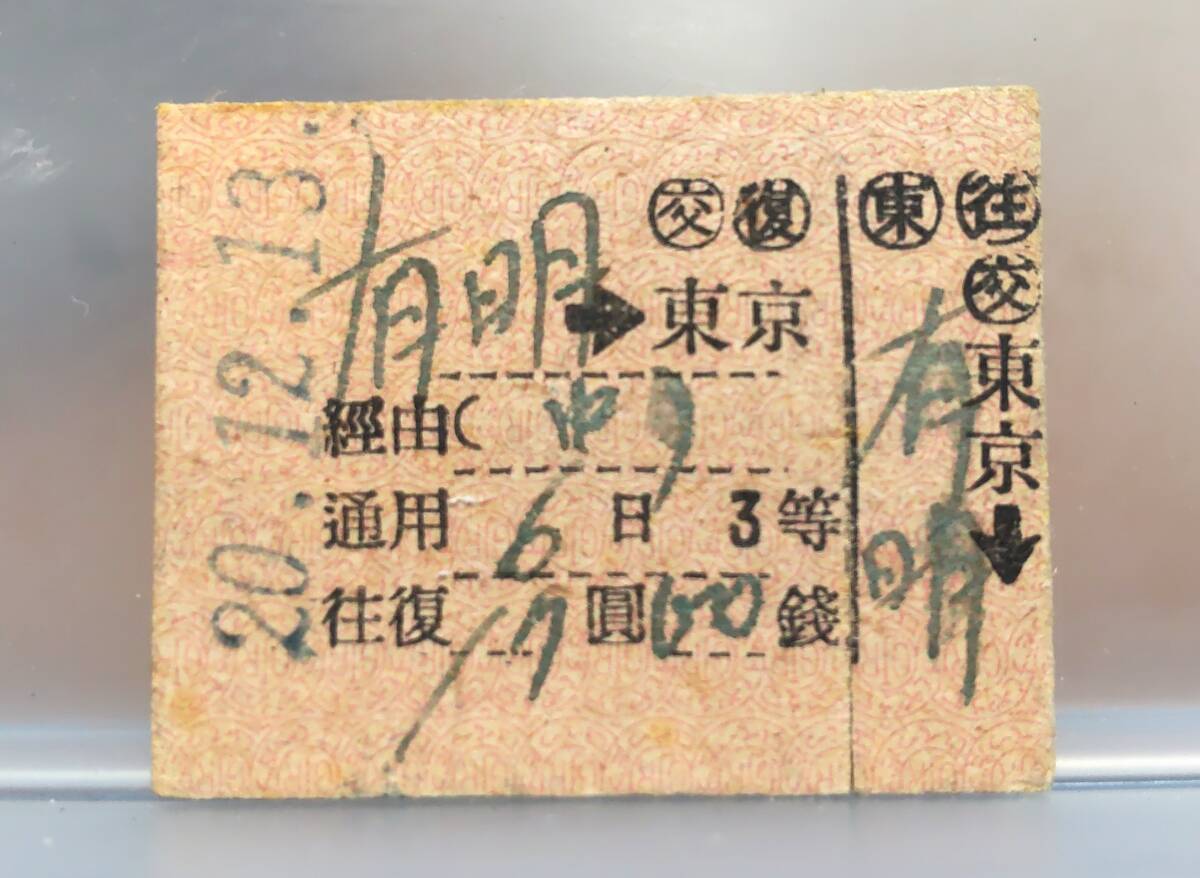 20.12.13.
交 復
有明➡東京
經由( 中 )
通用 6 日 3等
往復 17 圓 60 錢
東 往
交
東京⬇
有明